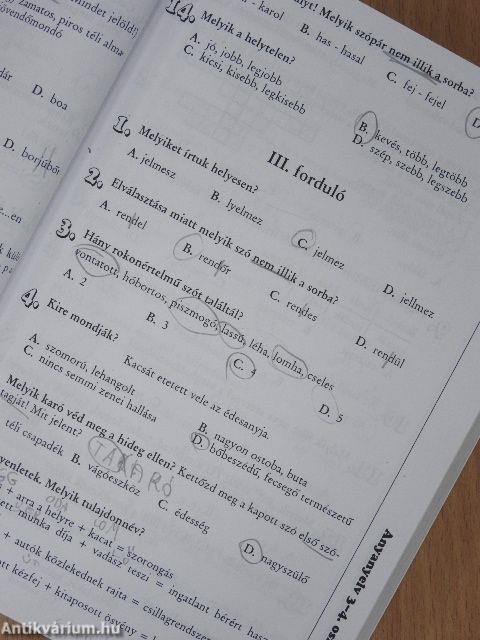 mindet jelöld!)
zamatos, piros téli alma
D. boa
D. borjúbőr
Melyik szópár nem illik a sorba?
- karol B. has - hasal C. fej - fejel
14. Melyik a helytelen?
A. jó, jobb, legjobb B. kevés, több, legtöbb
C. kicsi, kisebb, legkisebb D. szép, szebb, legszebb
III. forduló
1. Melyiket írtuk helyesen?
A. jelmesz B. lyelmez C. jelmez D. jellmez
2. Elválasztása miatt melyik szó nem illik a sorba?
A. rendel B. rendőr C. rendes D. rendül
3. Hány rokonértelmű szót találtál?
vontatott, hóbortos, piszmogó, lassú, léha, lomha, cseles
A. 2 B. 3 C. 4 D. 5
4. Kire mondják?
Kacsát etetett vele az édesanyja.
A. szomorú, lehangolt B. nagyon ostoba, buta
C. nincs semmi zenei hallása D. bőbeszédű, fecsegő természetű
Melyik karó véd meg a hideg ellen? Kettőzd meg a kapott szó első szó-
tagját! Mit jelent?
TAKARÓ
téli csapadék B. vágóeszköz C. édesség D. nagyszülő
Melyik tulajdonnév?
+ arra a helyre + kacat = szorongás
munka díja + vadász teszi = ingatlant bérért
+ autók közlekednek rajta = csillagrendszer
kézfej + kitaposott ösvény =
Anyanyelv 3-4.
Antikvárium.hu